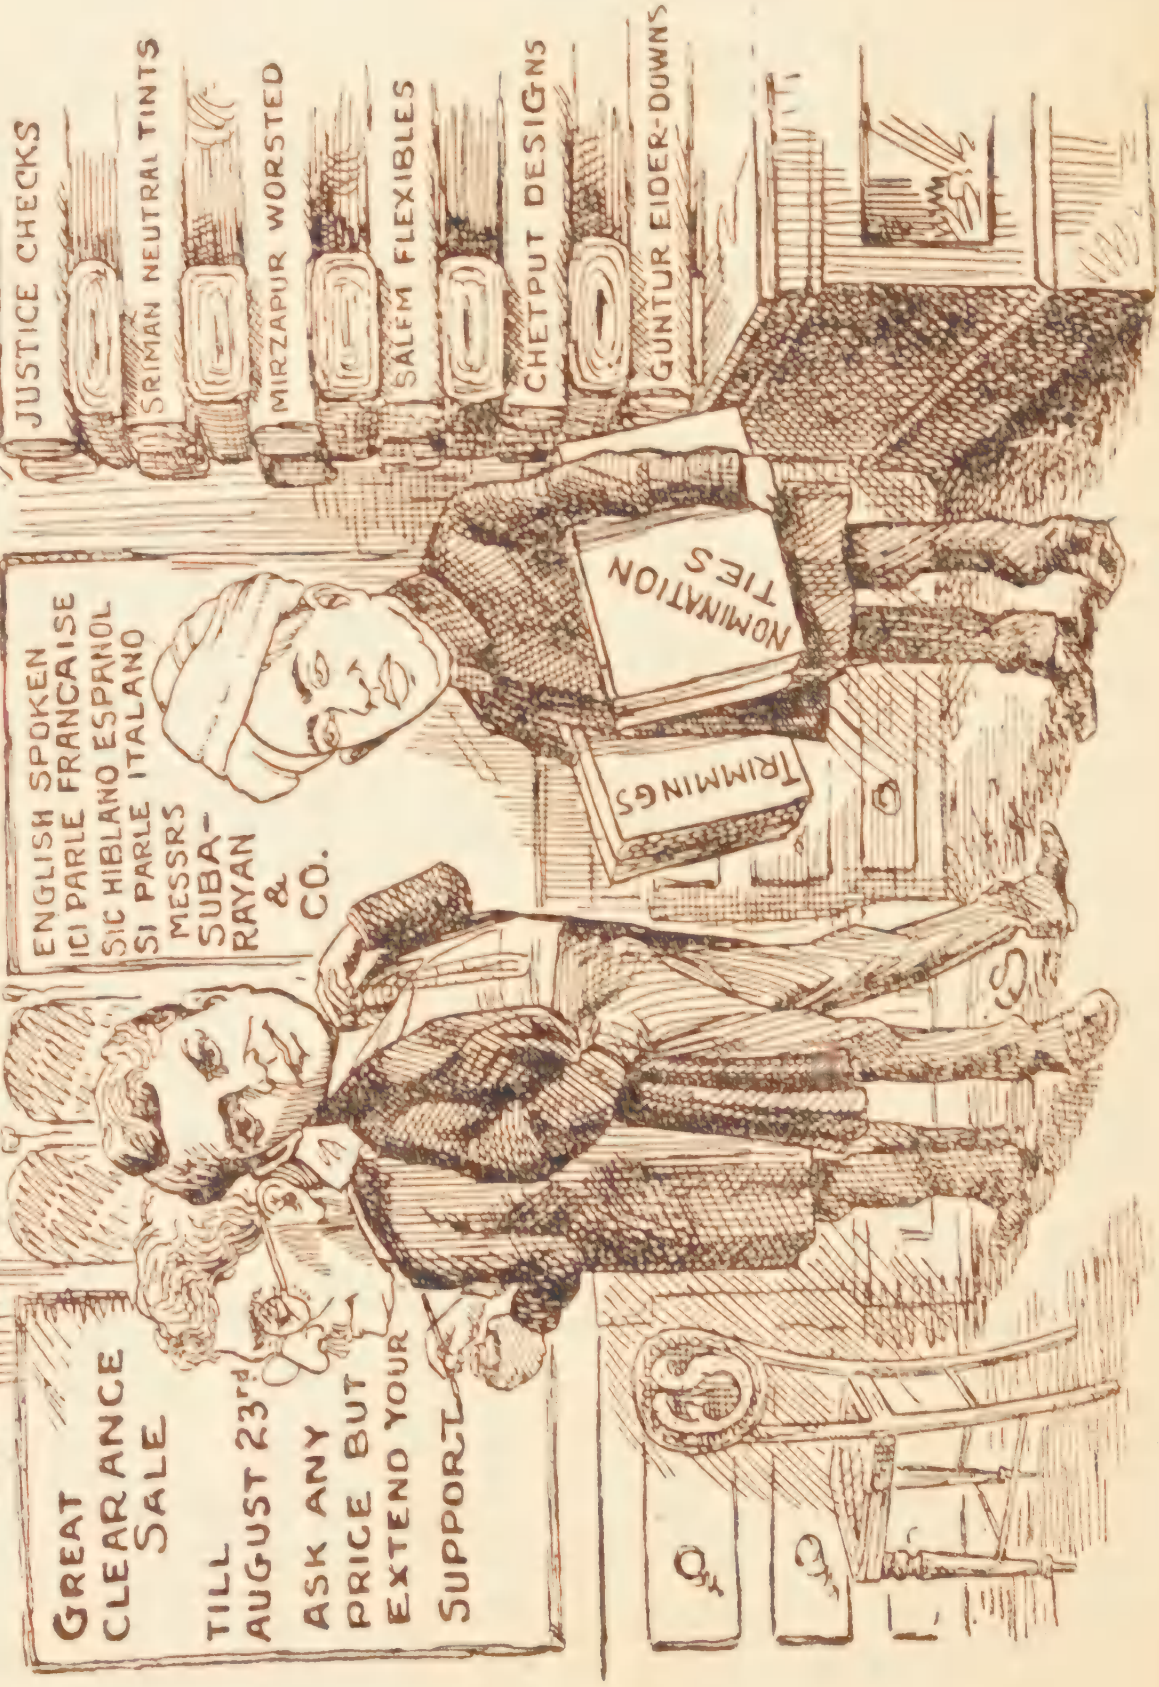 GREAT
CLEARANCE
SALE
TILL
AUGUST 23rd
ASK ANY
PRICE BUT
EXTEND YOUR
SUPPORT
ENGLISH SPOKEN
ICI PARLE FRANCAISE
SIC HIBLANO ESPANOL
SI PARLE ITALANO
MESSRS
SUBA-
RAYAN
&
CO.
JUSTICE CHECKS
SRIMAN NEUTRAL TINTS
MIRZAPUR WORSTED
SALEM FLEXIBLES
CHETPUT DESIGNS
GUNTUR EIDER-DOWNS
TRIMMINGS
NOMINATION
TIES